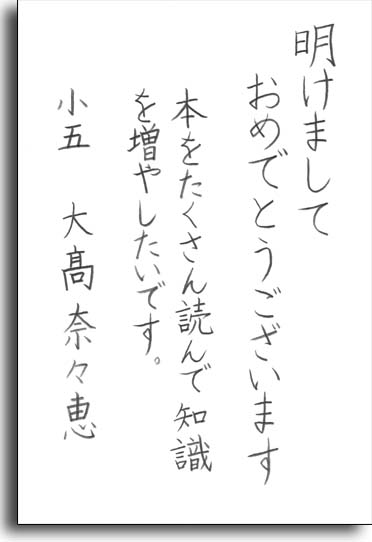 明けまして
おめでとうございます
本をたくさん読んで知識
を増やしたいです。
小五　大髙奈々恵